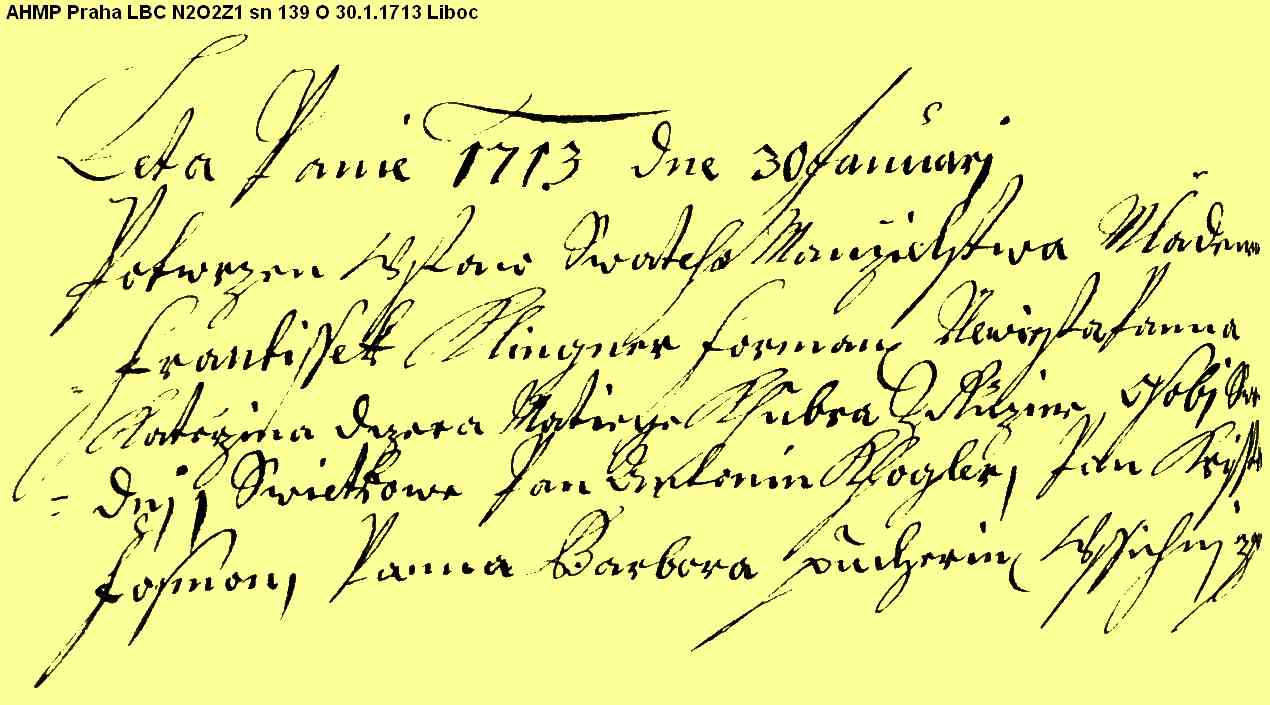 AHMP Praha LBC N2O2Z1 sn 139 O 30.1.1713 Liboc
Leta Panie 1713 dne 30 Januarj
Potwrzen w Staw Swateho Manzielstwa Mladene
Frantissek Klingner Forman, Newiesta Panna
Katerzina dczera Matiege Hubra z Ruzine, Gsobj Swo
dnj, Swietkowe Pan Antonin Kogler, Pan Krist
Panna Barbora Wssichnj z